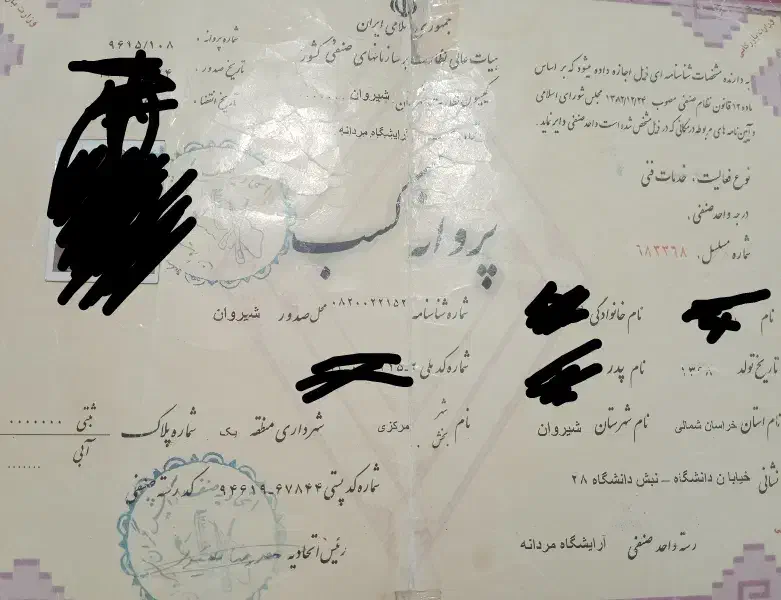 جمهوری اسلامی ایران
هیات عالی نظارت بر سازمانهای صنفی کشور
شیروان
آرایشگاه مردانه
شماره پروانه : ۹۶۱۵/۱۰۸
تاریخ صدور :
تاریخ انقضاء :
به دارنده مشخصات شناسنامه ای ذیل اجازه داده میشود که بر اساس
ماده ۱۲ قانون نظام صنفی مصوب ۱۳۸۲/۱۲/۲۴ مجلس شورای اسلامی
و آیین نامه های مربوطه در مکانی که در ذیل مشخص شده است واحد صنفی دایر نماید .
نوع فعالیت . خدمات فنی
درجه واحد صنفی .
شماره مسلسل . ۶۸۳۳۶۸
پروانه کسب
نام
نام خانوادگی
شماره شناسنامه ۰۸۲۰۰۲۲۱۵۲ محل صدور شیروان
تاریخ تولد
نام پدر
شماره کد ملی
نام استان خراسان شمالی نام شهرستان شیروان
نام شهر بخش مرکزی شهرداری منطقه یک شماره پلاک ثبتی آبی
نشانی خیابان دانشگاه – نبش دانشگاه ۲۸
شماره کد پستی ۹۴۶۱۹-۶۷۸۴۴ کد رسته صنفی
رسته واحد صنفی آرایشگاه مردانه
رئیس اتحادیه